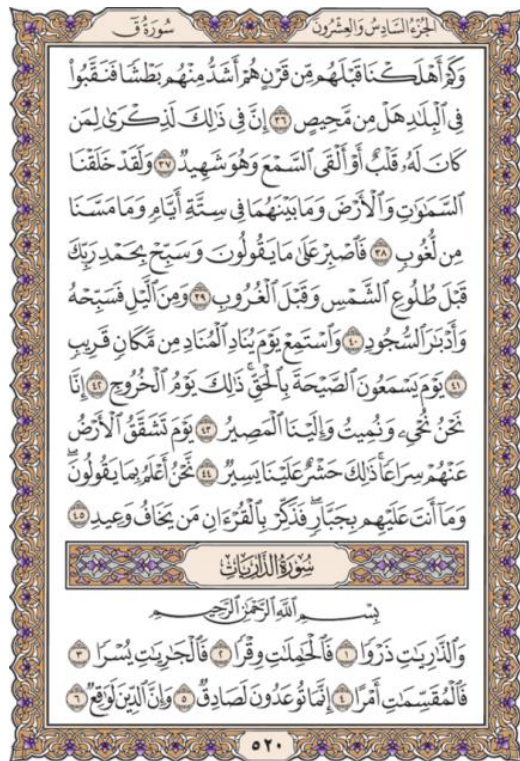 الجزء السادس والعشرون
سورة ق
وَكَمْ أَهْلَكْنَا قَبْلَهُم مِّن قَرْنٍ هُمْ أَشَدُّ مِنْهُم بَطْشًا فَنَقَّبُوا۟
فِى ٱلْبِلَـٰدِ هَلْ مِن مَّحِيصٍ ٣٦ إِنَّ فِى ذَٰلِكَ لَذِكْرَىٰ لِمَن
كَانَ لَهُۥ قَلْبٌ أَوْ أَلْقَى ٱلسَّمْعَ وَهُوَ شَهِيدٌ ٣٧ وَلَقَدْ خَلَقْنَا
ٱلسَّمَـٰوَٰتِ وَٱلْأَرْضَ وَمَا بَيْنَهُمَا فِى سِتَّةِ أَيَّامٍ وَمَا مَسَّنَا
مِن لُّغُوبٍ ٣٨ فَٱصْبِرْ عَلَىٰ مَا يَقُولُونَ وَسَبِّحْ بِحَمْدِ رَبِّكَ
قَبْلَ طُلُوعِ ٱلشَّمْسِ وَقَبْلَ ٱلْغُرُوبِ ٣٩ وَمِنَ ٱلَّيْلِ فَسَبِّحْهُ
وَأَدْبَـٰرَ ٱلسُّجُودِ ٤٠ وَٱسْتَمِعْ يَوْمَ يُنَادِ ٱلْمُنَادِ مِن مَّكَانٍ قَرِيبٍ
٤١ يَوْمَ يَسْمَعُونَ ٱلصَّيْحَةَ بِٱلْحَقِّ ۚ ذَٰلِكَ يَوْمُ ٱلْخُرُوجِ ٤٢ إِنَّا
نَحْنُ نُحْىِۦ وَنُمِيتُ وَإِلَيْنَا ٱلْمَصِيرُ ٤٣ يَوْمَ تَشَقَّقُ ٱلْأَرْضُ
عَنْهُمْ سِرَاعًا ۚ ذَٰلِكَ حَشْرٌ عَلَيْنَا يَسِيرٌ ٤٤ نَّحْنُ أَعْلَمُ بِمَا يَقُولُونَ ۖ
وَمَآ أَنتَ عَلَيْهِم بِجَبَّارٍ ۖ فَذَكِّرْ بِٱلْقُرْءَانِ مَن يَخَافُ وَعِيدِ ٤٥
سورة الذاريات
بِسْمِ ٱللَّهِ ٱلرَّحْمَـٰنِ ٱلرَّحِيمِ
وَٱلذَّٰرِيَـٰتِ ذَرْوًا ١ فَٱلْحَـٰمِلَـٰتِ وِقْرًا ٢ فَٱلْجَـٰرِيَـٰتِ يُسْرًا ٣
فَٱلْمُقَسِّمَـٰتِ أَمْرًا ٤ إِنَّمَا تُوعَدُونَ لَصَادِقٌ ٥ وَإِنَّ ٱلدِّينَ لَوَٰقِعٌ ٦
٥٢٠